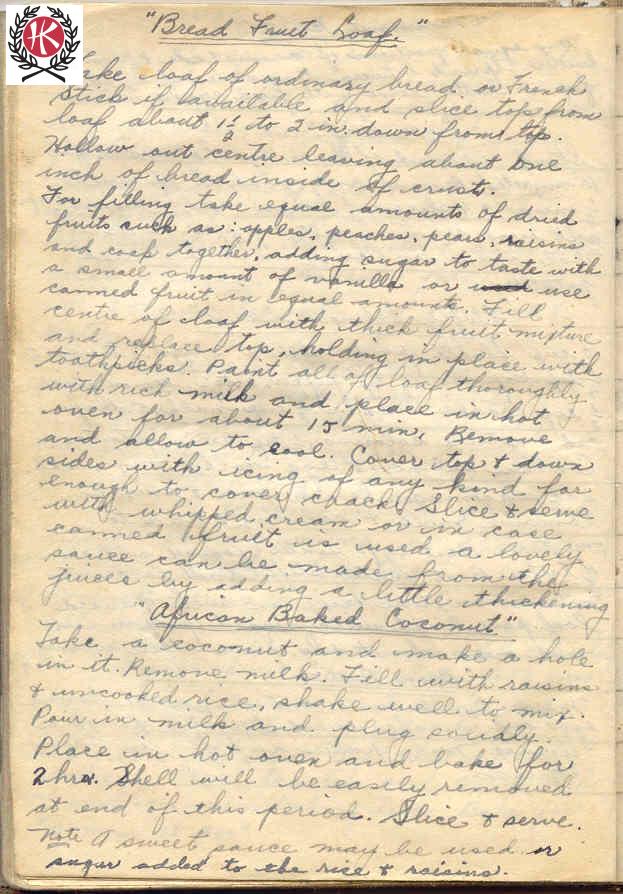 HK
"Bread Fruit Loaf."
Take loaf of ordinary bread or French
Stick if available and slice top from
loaf about 1 1/2 to 2 in. down from top.
Hollow out centre leaving about one
inch of bread inside of crust.
For filling take equal amounts of dried
fruits such as: apples, peaches, pears, raisins
and cook together, adding sugar to taste with
a small amount of vanilla or used use
canned fruit in equal amounts. Fill
centre of loaf with thick fruit mixture
and replace top, holding in place with
toothpicks. Paint all of loaf thoroughly
with rich milk and place in hot
oven for about 15 min. Remove
and allow to cool. Cover top & down
sides with icing of any kind for
enough to cover crack. Slice & serve
with whipped cream or in case
canned fruit is used a lovely
sauce can be made from the
juices by adding a little thickening
"African Baked Coconut"
Take a coconut and make a hole
in it. Remove milk. Fill with raisins
& uncooked rice, shake well to mix.
Pour in milk and plug solidly.
Place in hot oven and bake for
2 hrs. Shell will be easily removed
at end of this period. Slice & serve.
Note A sweet sauce may be used or
sugar added to the rice & raisins.